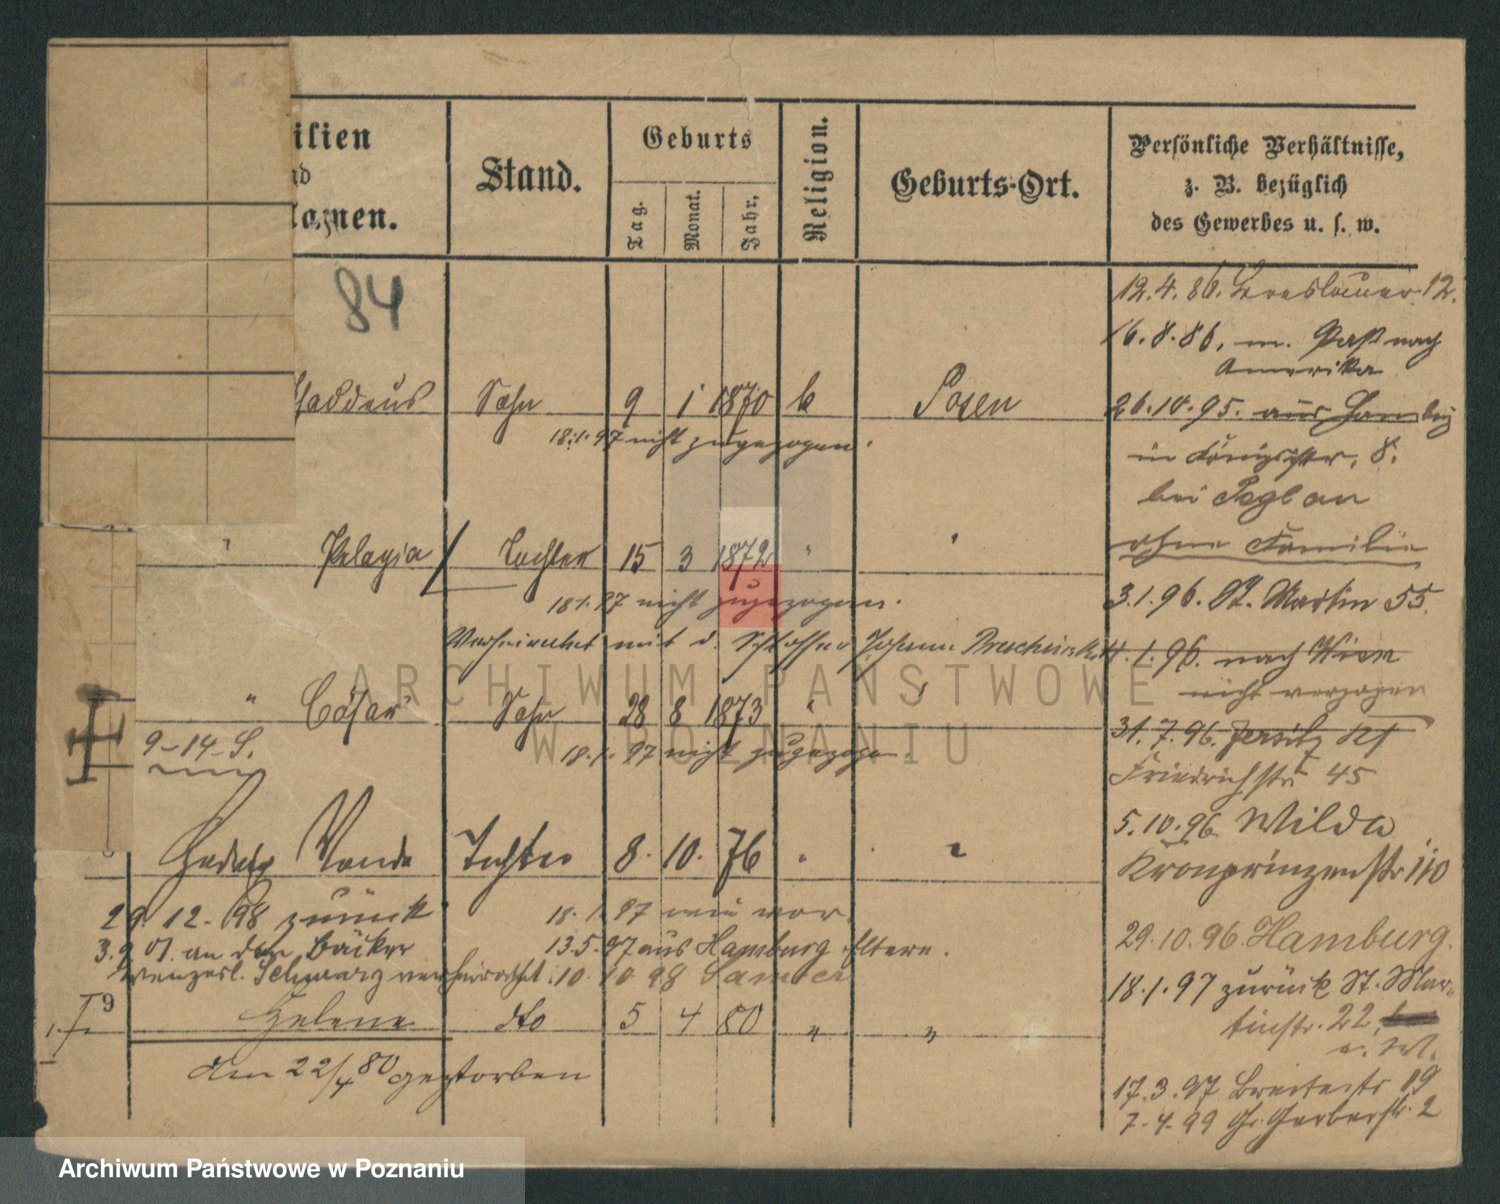 ilien
nd
Namen.
Stand.
Geburts
Tag.
Monat.
Jahr.
Religion.
Geburts-Ort.
Persönliche Verhältnisse,
z. B. bezüglich
des Gewerbes u. s. w.
84
12.4.86. Breslauer 12.
16.8.86. m. Paß nach
Amerika
Thaddeus Sohn 9 1 1870 k Posen
18.1.97 nicht zugezogen.
26.10.95. aus Hamburg
in Königstr. 8.
bei
ohne Familie
" Pelagia / Tochter 15 3 1872 " "
18.1.97 nicht zugezogen.
Verheirathet mit d. Schlosser Johann
3.1.96. St. Martin 55.
4.1.96. nach Wien
nicht verzogen
" Cäsar Sohn 28 8 1873 " "
9-14-S.
18.1.97 nicht zugezogen
31.7.96. Jersitz
Friedrichstr 45
5.10.96 Wilda
Kronprinzenstr 110
Hedwig Wanda Tochter 8. 10. 76 " "
29.12.98 zurück
18.1.97 wie vor.
3.9.01. an den Bäcker
13.5.97 aus Hamburg Eltern.
Wenzesl. Schwarz verheirathet. 10.10.98 Samter
29.10.96 Hamburg.
18.1.97 zurück St. Mar-
tinstr. 22
Helene dto 5 4 80 " "
den 22/4 80 gestorben
17.3.97 Breitestr 19
7.4.99 Gr. Gerberstr. 2
ARCHIWUM PAŃSTWOWE
W POZNANIU
Archiwum Państwowe w Poznaniu